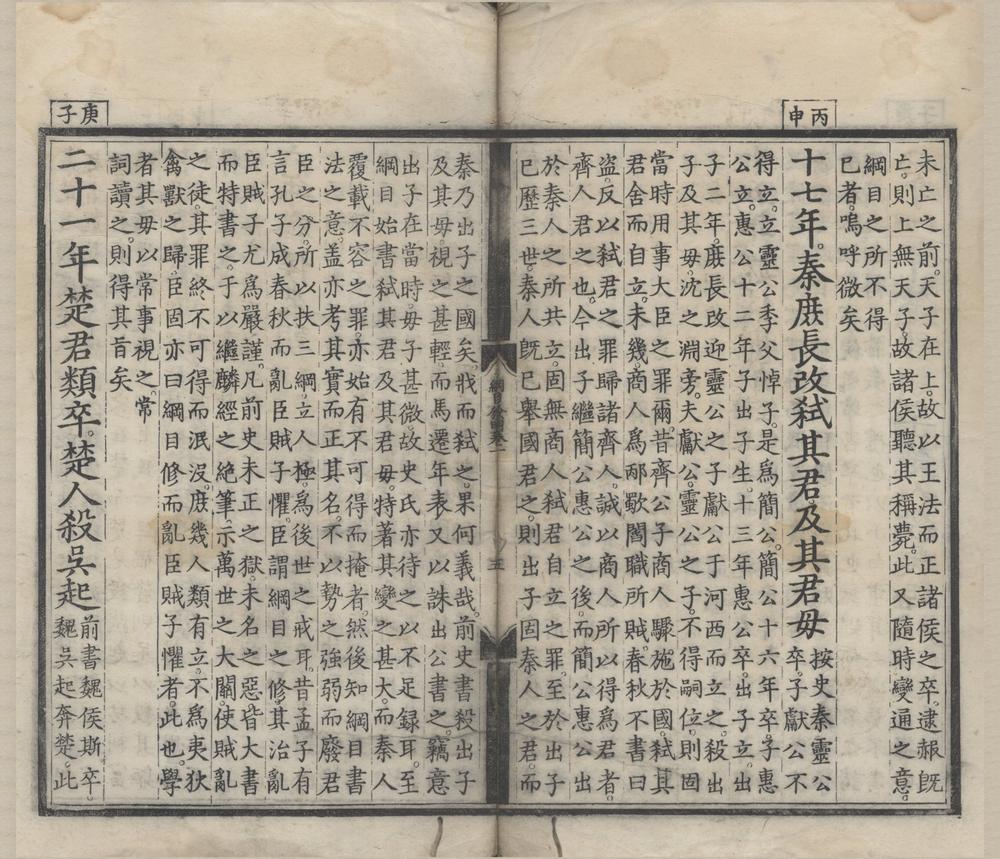 丙申
未亡之前天子在上故以王法而正諸侯之卒逮赧既
亡則上無天子故諸侯聽其稱薨此又隨時變通之意
綱目之所不得
已者嗚呼微矣
十七年秦庶長改弒其君及其君母
按史秦靈公
卒子獻公不
得立立靈公季父悼子是爲簡公簡公十六年卒子惠
公立惠公十二年子出子生十三年惠公卒出子立出
子二年庶長改迎靈公之子獻公于河西而立之殺出
子及其母沈之淵旁夫獻公靈公之子不得嗣位則固
當時用事大臣之罪爾昔齊公子商人驟施於國弒其
君舍而自立未幾商人爲邴歜閻職所賊春秋不書曰
盜反以弒君之罪歸諸齊人誠以商人所以得爲君者
齊人君之也今出子繼簡公惠公之後而簡公惠公出
於秦人之所共立固無商人弒君自立之罪至於出子
已歷三世秦人旣已舉國君之則出子固秦人之君而
綱目發明卷一
五
秦乃出子之國矣戕而弒之果何義哉前史書殺出子
及其母視之甚輕而馬遷年表又以誅出公書之竊意
出子在當時母子甚微故史氏亦待之以不足録耳至
綱目始書弒其君及其君母特著其變之甚大而秦人
覆載不容之罪亦始有不可得而掩者然後知綱目書
法之意蓋亦考其實而正其名不以勢之強弱而廢君
臣之分所以扶三綱立人極爲後世之戒耳昔孟子有
言孔子成春秋而亂臣賊子懼臣謂綱目之修其治亂
臣賊子尤爲嚴謹凡前史未正之獄未名之惡皆大書
而特書之于以繼麟經之絶筆示萬世之大閑使賊亂
之徒其罪終不可得而泯没庶幾人類有立不爲夷狄
禽獸之歸臣固亦曰綱目修而亂臣賊子懼者此也學
者其毋以常事視之常
詞讀之則得其旨矣
庚子
二十一年楚君類卒楚人殺吳起
前書魏侯斯卒
魏吳起奔楚此